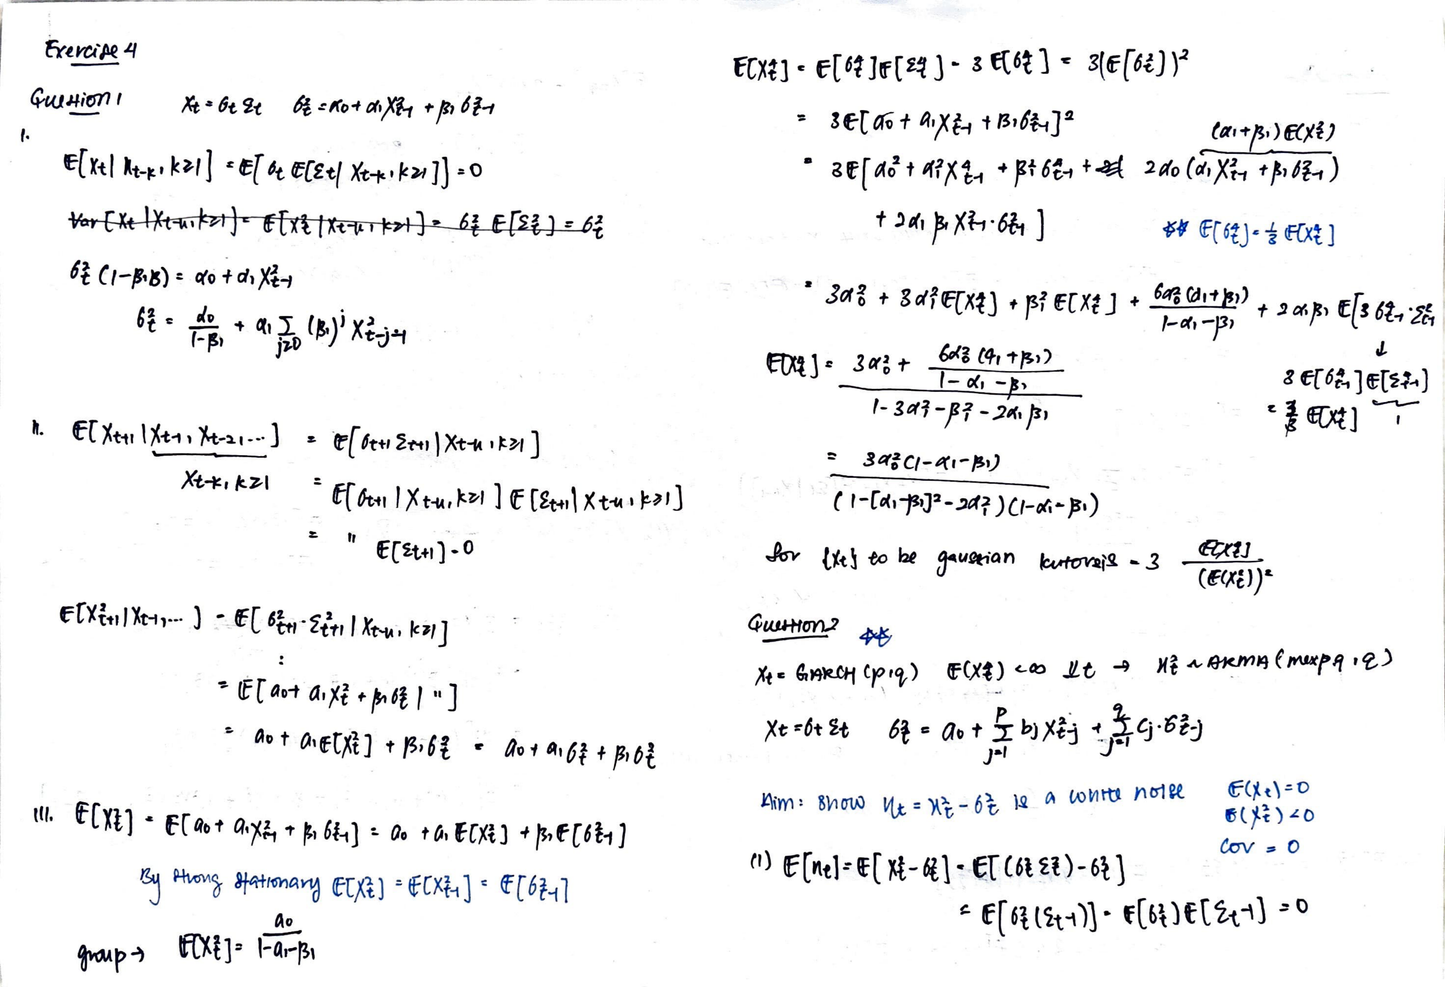 Exercise 4
Question 1   X_t = σ_t ε_t   σ_t^2 = α_0 + α_1 X_{t-1}^2 + β_1 σ_{t-1}^2
i.
E[X_t | X_{t-k}, k≥1] = E[σ_t E[ε_t | X_{t-k}, k≥1]] = 0
Var[X_t | X_{t-k}, k≥1] = E[X_t^2 | X_{t-k}, k≥1] = σ_t^2 E[ε_t^2] = σ_t^2
σ_t^2 (1-β_1B) = α_0 + α_1 X_{t-1}^2
σ_t^2 = α_0/(1-β_1) + α_1 Σ_{j≥0} (β_1)^j X_{t-j-1}^2
ii. E[X_{t+1} | X_{t-1}, X_{t-2}, ...] = E[σ_{t+1} ε_{t+1} | X_{t-k}, k≥1]
X_{t-k}, k≥1   = E[σ_{t+1} | X_{t-k}, k≥1] E[ε_{t+1} | X_{t-k}, k≥1]
= " E[ε_{t+1}] = 0
E[X_{t+1}^2 | X_{t-1}, ...] = E[σ_{t+1}^2 · ε_{t+1}^2 | X_{t-k}, k≥1]
:
= E[a_0 + a_1 X_t^2 + β_1 σ_t^2 | "]
= a_0 + a_1 E[X_t^2] + β_1 σ_t^2 = a_0 + a_1 σ_t^2 + β_1 σ_t^2
iii. E[X_t^2] = E[a_0 + a_1 X_{t-1}^2 + β_1 σ_{t-1}^2] = a_0 + a_1 E[X_t^2] + β_1 E[σ_{t-1}^2]
By strong stationary E[X_t^2] = E[X_{t-1}^2] = E[σ_{t-1}^2]
group → E[X_t^2] = a_0/(1-a_1-β_1)
E[X_t^4] = E[σ_t^4] E[ε_t^4] = 3 E[σ_t^4] = 3(E[σ_t^2])^2
= 3E[α_0 + α_1 X_{t-1}^2 + β_1 σ_{t-1}^2]^2
(α_1+β_1) E(X_t^2)
= 3E[α_0^2 + α_1^2 X_{t-1}^4 + β_1^2 σ_{t-1}^4 + 2α_0 (α_1 X_{t-1}^2 + β_1 σ_{t-1}^2)
+ 2α_1 β_1 X_{t-1}^2 · σ_{t-1}^2]
** E[σ_t^4] = 1/3 E[X_t^4]
= 3α_0^2 + 3α_1^2 E[X_t^4] + β_1^2 E[X_t^4] + 6α_0^2(α_1+β_1)/(1-α_1-β_1) + 2α_1β_1 E[3 σ_{t-1}^4 · ε_{t-1}^2
↓
3 E[σ_{t-1}^4] E[ε_{t-1}^2]
= 3/3 E[X_t^4]   1
E[X_t^4] = (3α_0^2 + 6α_0^2(α_1+β_1)/(1-α_1-β_1)) / (1-3α_1^2-β_1^2-2α_1β_1)
= 3α_0^2(1-α_1-β_1) / (1-[α_1-β_1]^2-2α_1^2)(1-α_1-β_1)
for {X_t} to be gaussian kutorsis = 3   E[X_t^4]/(E(X_t^2))^2
Question 2 **
X_t = GARCH(p,q)   E(X_t^4) < ∞ ∀t → X_t^2 ~ ARMA(maxp,q, q)
X_t = σ_t ε_t   σ_t^2 = a_0 + Σ_{j=1}^p b_j X_{t-j}^2 + Σ_{j=1}^q c_j · σ_{t-j}^2
Aim: show η_t = X_t^2 - σ_t^2 is a white noise
E(X_t) = 0
E(X_t^2) < 0
cov = 0
(1) E[η_t] = E[X_t^2 - σ_t^2] = E[(σ_t^2 ε_t^2) - σ_t^2]
= E[σ_t^2 (ε_t-1)] = E(σ_t^2) E[ε_t-1] = 0